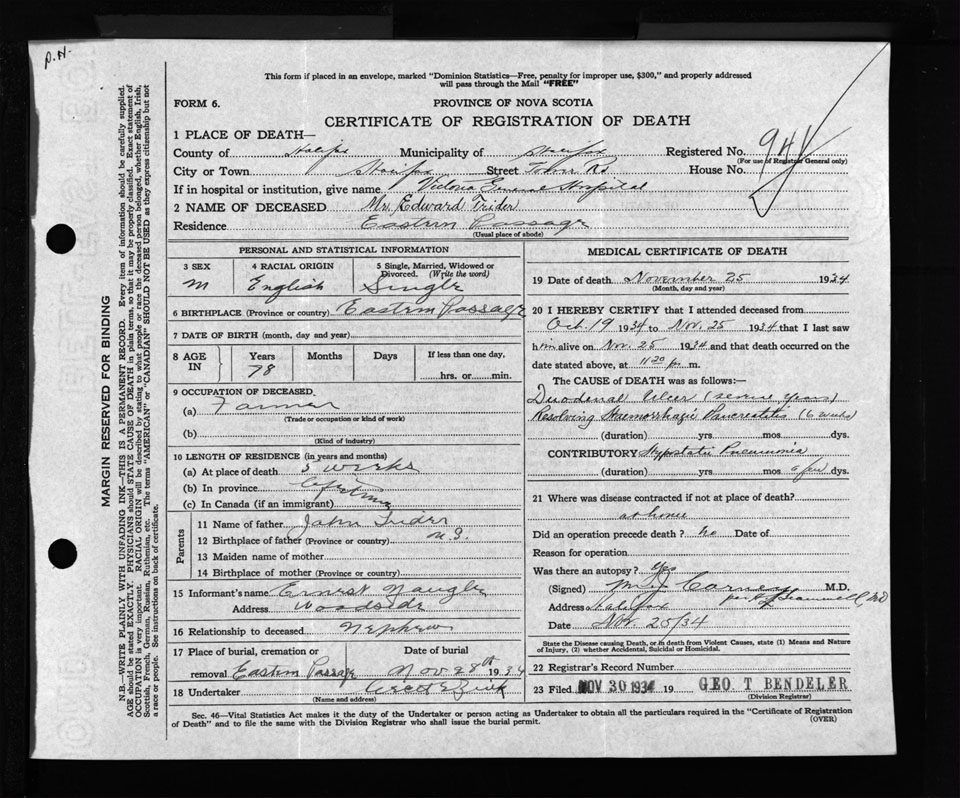 D.H.
This form if placed in an envelope, marked "Dominion Statistics—Free, penalty for improper use, $300," and properly addressed
will pass through the Mail "FREE"
FORM 6.
PROVINCE OF NOVA SCOTIA
CERTIFICATE OF REGISTRATION OF DEATH
1 PLACE OF DEATH—
County of Halifax Municipality of Halifax Registered No.
(For use of Registrar General only)
City or Town Halifax Street Tower Rd House No.
If in hospital or institution, give name Victoria General Hospital
2 NAME OF DECEASED Mr. Edward Trider
Residence Eastern Passage
(Usual place of abode)
PERSONAL AND STATISTICAL INFORMATION
3 SEX 4 RACIAL ORIGIN 5 Single, Married, Widowed or Divorced. (Write the word)
M English Single
6 BIRTHPLACE (Province or country) Eastern Passage
7 DATE OF BIRTH (month, day and year)
8 AGE IN Years Months Days If less than one day,
78 hrs. or min.
9 OCCUPATION OF DECEASED
(a) Farmer
(Trade or occupation or kind of work)
(b)
(Kind of industry)
10 LENGTH OF RESIDENCE (in years and months)
(a) At place of death 5 weeks
(b) In province lifetime
(c) In Canada (if an immigrant)
Parents
11 Name of father John Trider
12 Birthplace of father (Province or country) N.S.
13 Maiden name of mother
14 Birthplace of mother (Province or country)
15 Informant's name Ernest Naugle
Address Woodside
16 Relationship to deceased Nephew
17 Place of burial, cremation or removal Date of burial
Eastern Passage Nov 28th 1934
18 Undertaker
(Name and address)
MEDICAL CERTIFICATE OF DEATH
19 Date of death November 25 1934
(Month, day and year)
20 I HEREBY CERTIFY that I attended deceased from
Oct. 19 1934 to Nov. 25 1934 that I last saw
him alive on Nov. 25 1934 and that death occurred on the
date stated above, at 11 20 p. m.
The CAUSE OF DEATH was as follows:—
Duodenal Ulcer (some years)
Resolving Haemorrhagic Pancreatitis (6 weeks)
(duration) yrs. mos. dys.
CONTRIBUTORY Hypostatic Pneumonia
(duration) yrs. mos. a few dys.
21 Where was disease contracted if not at place of death?
at home
Did an operation precede death? no Date of
Reason for operation
Was there an autopsy? Yes
(Signed) Carney M.D.
per M.D.
Address Halifax
Date Nov. 25/34
State the Disease causing Death, or in death from Violent Causes, state (1) Means and Nature
of Injury, (2) whether Accidental, Suicidal or Homicidal.
22 Registrar's Record Number
23 Filed NOV 30 1934 19 GEO T BENDELER
(Division Registrar)
Sec. 46—Vital Statistics Act makes it the duty of the Undertaker or person acting as Undertaker to obtain all the particulars required in the "Certificate of Registration
of Death" and to file the same with the Division Registrar who shall issue the burial permit. (OVER)
MARGIN RESERVED FOR BINDING
N.B.—WRITE PLAINLY WITH UNFADING INK—THIS IS A PERMANENT RECORD. Every item of information should be carefully supplied.
AGE should be stated EXACTLY. PHYSICIANS should STATE CAUSE OF DEATH in plain terms, so that it may be properly classified. Exact statement of
OCCUPATION is very important. RACIAL ORIGIN will be described by stating to what people or race the deceased person belonged, whether English, Irish,
Scottish, French, German, Russian, Ruthenian, etc. The terms "AMERICAN" or "CANADIAN" SHOULD NOT BE USED as they express citizenship but not
a race or people. See instructions on back of certificate.